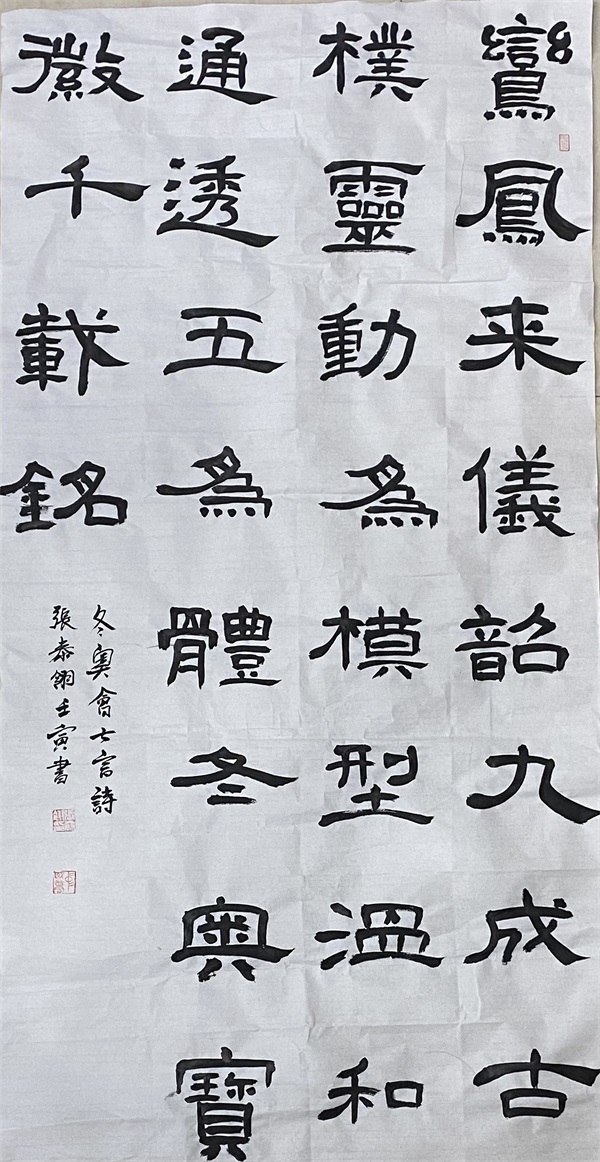 鸞鳳来儀韶九成古
樸靈動為模型溫和
通透五為體冬奧寶
徽千載銘
冬奧會七言詩
張泰翔壬寅書